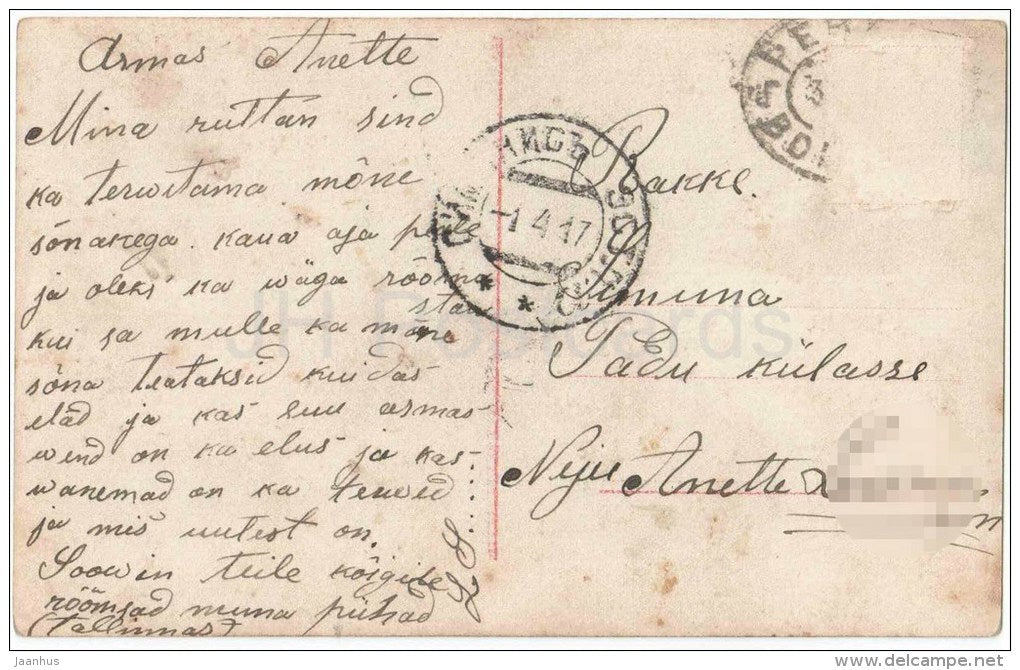 Armas Anette
Mina ruttan sind
ka terwitama mõne
sõnakega. kaua aja peale
ja oleks ka wäga rõõmu
stau
kui sa mulle ka mõne
sõna teataksid kuidas
elad ja kas suu armas
wend on ka elus ja kas
wanemad on ka terwed
ja mis uutest on.
Soowin teile kõigile
rõõmsad muna pühad
(Tallinnas)
-1 4 17
Rakke.
Simuna
Padu külasse
Neiu Anette
JH Postcards
Jaanhus
www.delcampe.net